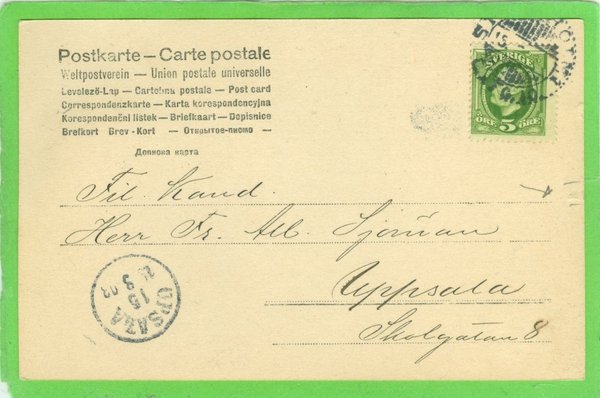 Postkarte — Carte postale
Weltpostverein — Union postale universelle
Levelező-Lap — Cartolina postale — Post card
Correspondenzkarte — Karta korespondencyjna
Korespondenční listek — Briefkaart — Dopisnice
Brefkort Brev-Kort — Открытое-письмо —
Дописна карта
SVERIGE
ÖRE 5 ÖRE
Fil. Kand.
Herr Fr. Alb. Sjöman
Uppsala
Skolgatan 8
UPSALA
15